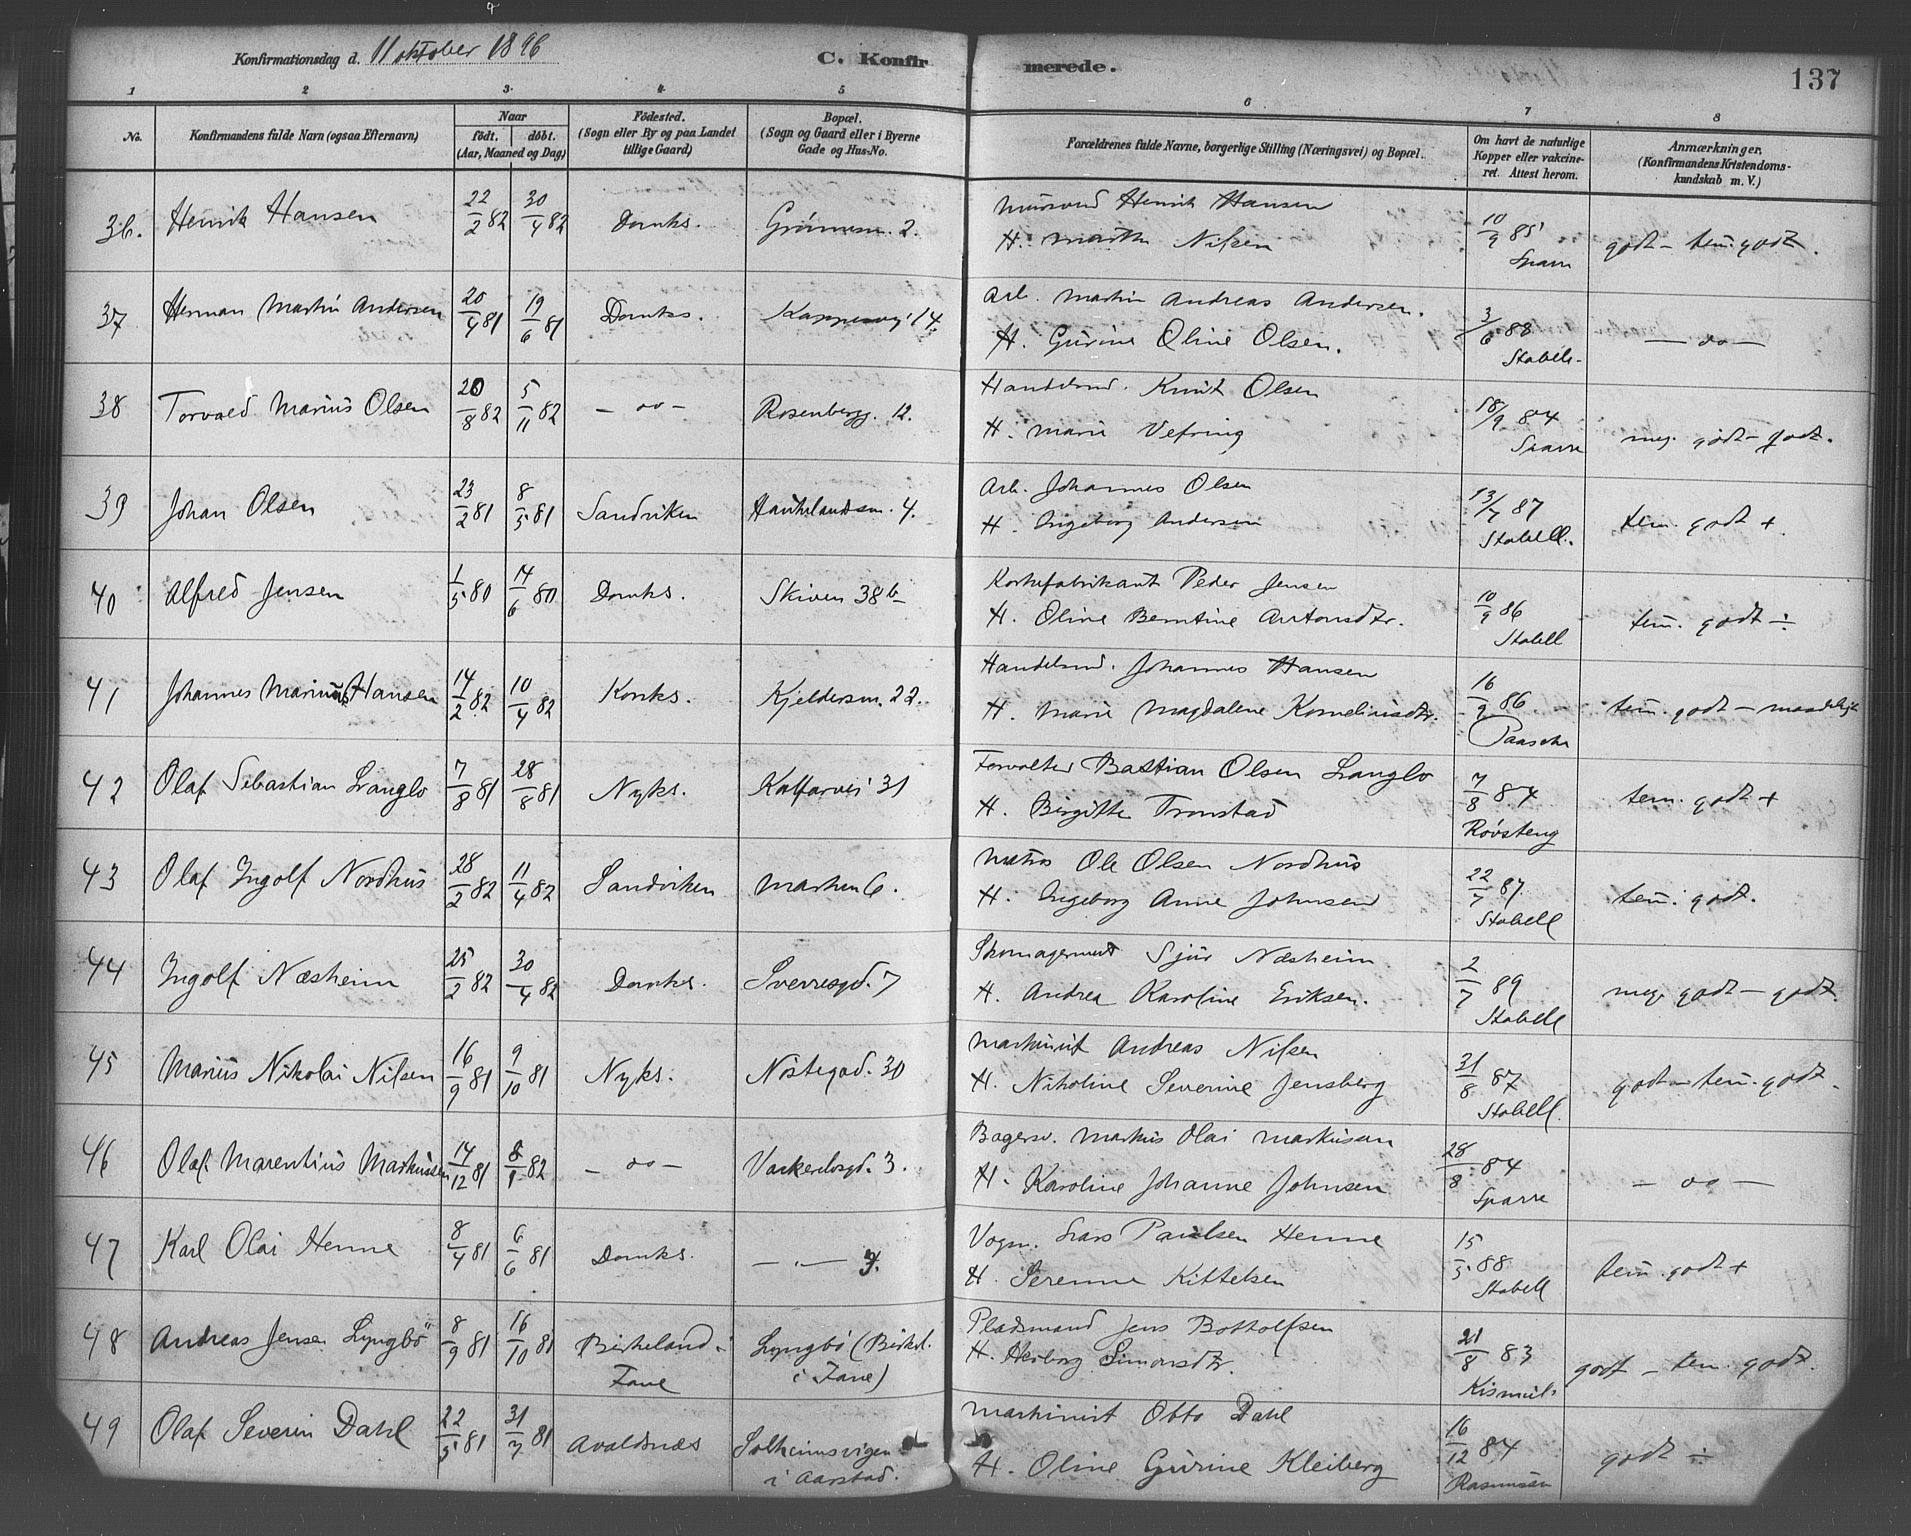 Konfirmationsdag d. 11 oktober 1896
C. Konfirmerede.
137
1 2 3. 4. 5 6 7 8
No.
Konfirmandens fulde Navn (ogsaa Efternavn)
Naar
født. døbt.
(Aar, Maaned og Dag)
Födested.
(Sogn eller By og paa Landet
tillige Gaard)
Bopæl.
(Sogn og Gaard eller i Byerne
Gade og Hus-No.
Forældrenes fulde Navne, borgerlige Stilling (Næringsvei) og Bopæl.
Om havt de naturlige
Kopper eller vakcine-
ret. Attest herom.
Anmærkninger.
(Konfirmandens Kristendoms-
kundskab m. V.)
36. Henrik Hansen 22/2 82 30/4 82 Domks. 2. Mursvend Henrik Hansen
H. Marthe Nilsen 10/9 85 Sparre godt - tem. godt.
37 Herman Martin Andersen 20/4 81 19/6 81 Domks. 14. Arb. Martin Andreas Andersen.
H. Gurine Oline Olsen. 3/6 88 Stabell. — " —
38 Torvald Marius Olsen 20/8 82 5/11 82 — " — Rosenbergg. 12. Handelsmd. Knut Olsen
H. Marie Vefring 18/9 84 Sparre meg. godt - godt.
39 Johan Olsen 23/2 81 8/5 81 Sandviken Haukelandsm. 4. Arb. Johannes Olsen
H. Ingeborg Andersen 13/7 87 Stabell. tem. godt +
40 Alfred Jensen 1/5 80 14/6 80 Domks. Skiven 38 b Korkefabrikant Peder Jensen
H. Oline Berntine Antonsdtr. 10/9 86 Stabell tem. godt ÷
41 Johannes Marinus Hansen 14/2 82 10/4 82 Korsks. Kjeldersm. 22. Handelsmd. Johannes Hansen
H. Marie Magdalene Korneliusdtr. 16/9 86 Paasche tem. godt - maadeligt
42 Olaf Sebastian Langlo 7/8 81 28/8 81 Nyks. Kalfarvei 31 Forvalter Bastian Olsen Langlo
H. Birgitte Tronstad 7/8 84 Røvsteng tem. godt +
43 Olaf Ingolf Nordhus 28/2 82 11/4 82 Sandviken Marken 6. Matros Ole Olsen Nordhus
H. Ingeborg Anne Johnsen 22/7 87. Stabell tem. godt.
44 Ingolf Næsheim 25/2 82 30/4 82 Domks. Sverresgd. 7 Skomagermest Sjur Næsheim
H. Andrea Karoline Eriksen. 2/7 89 Stabell meg. godt - godt.
45 Marius Nikolai Nilsen 16/9 81 9/10 81 Nyks. Nöstegad. 30 Maskinist Andreas Nilsen
H. Nikoline Severine Jensberg 31/8 87 Stabell. godt - tem. godt.
46 Olaf Marentius Markussen 14/12 81 8/1 82 — " — 3. Bagersv. Markus Olai Markusen
H. Karoline Johanne Johnsen 28/8 84 Sparre — " —
47 Karl Olai Henne 8/4 81 6/6 81 Domks. — " — Vogm. Lars Paulsen Henne
H. Serenne Kittelsen 15/5 88 Stabell tem. godt +
48 Andreas Jensen Lyngbö 8/9 81 16/10 81 Birkeland i
Fane Lyngbö (Birkel.
i Fane) Pladsmand Jens Bottolfsen
H. Simonsdtr. 21/8 83 godt - tem. godt.
49 Olaf Severin Dahl 22/5 81 31/7 81 Avaldsnæs Solheimsvigen
i Aarstad. Maskinist Otto Dahl
H. Oline Gurine Kleiberg 16/12 84 Rasmussen godt ÷